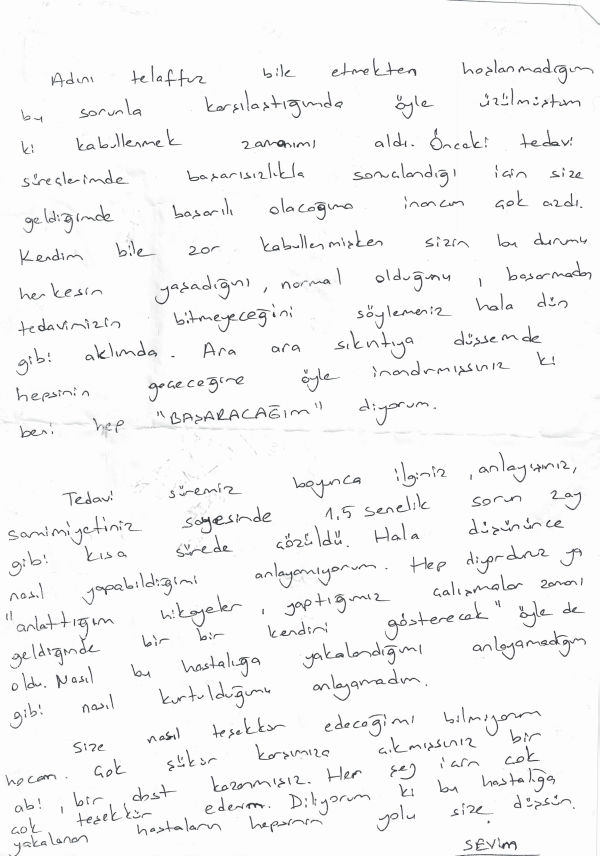 Adını telaffuz bile etmekten hoşlanmadığım
bu sorunla karşılaştığımda öyle üzülmüştüm
ki kabullenmek zamanımı aldı. Önceki tedavi
süreçlerimde başarısızlıkla sonuçlandığı için size
geldiğimde başarılı olacağıma inancım çok azdı.
Kendim bile zor kabullenmişken sizin bu durumu
herkesin yaşadığını, normal olduğunu, başarmadan
tedavimizin bitmeyeceğini söylemeniz hala dün
gibi aklımda. Ara ara sıkıntıya düşsemde
hepsinin geçeceğine öyle inandırmışsınız ki
beni hep "BAŞARACAĞIM" diyorum.
Tedavi süremiz boyunca ilginiz, anlayışınız,
samimiyetiniz sayesinde 1,5 senelik sorun 2ay
gibi kısa sürede çözüldü. Hala düşününce
nasıl yapabildiğimi anlayamıyorum. Hep diyordunuz ya
"anlattığım hikayeler, yaptığımız çalışmalar zamanı
geldiğinde bir bir kendini gösterecek" öyle de
oldu. Nasıl bu hastalığa yakalandığımı anlayamadığım
gibi nasıl kurtulduğumu anlayamadım.
Size nasıl teşekkür edeceğimi bilmiyorum
hocam. Çok şükür karşımıza çıkmışsınız bir
abi, bir dost kazanmışız. Her şey için çok
çok teşekkür ederim. Diliyorum ki bu hastalığa
yakalanan hastaların hepsinin yolu size düşsün.
SEVİM